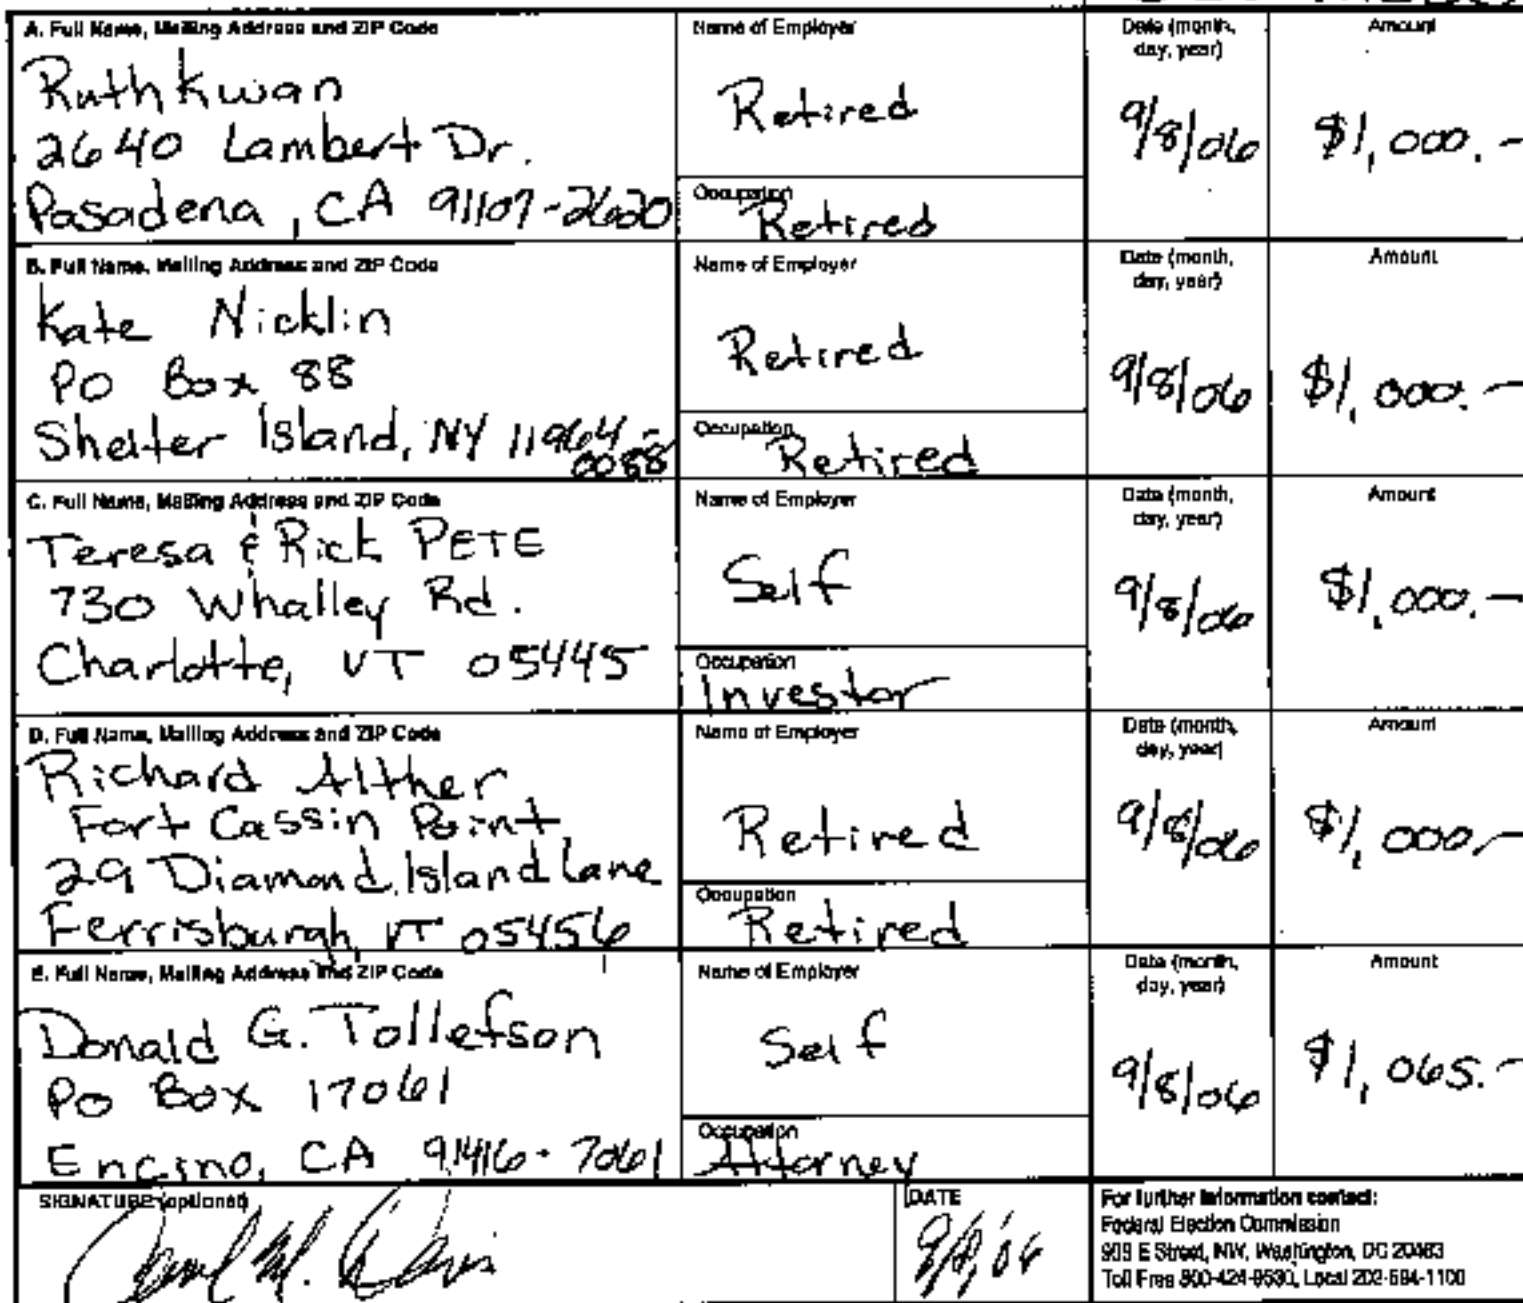 A. Full Name, Mailing Address and ZIP Code
Ruth Kwan
2640 Lambert Dr.
Pasadena, CA 91107-2620
Name of Employer
Retired
Occupation
Retired
Date (month,
day, year)
9/8/06
Amount
$1,000.-
B. Full Name, Mailing Address and ZIP Code
Kate Nicklin
PO Box 88
Shelter Island, NY 11964-
0088
Name of Employer
Retired
Occupation
Retired
Date (month,
day, year)
9/8/06
Amount
$1,000.-
C. Full Name, Mailing Address and ZIP Code
Teresa & Rick PETE
730 Whalley Rd.
Charlotte, VT 05445
Name of Employer
Self
Occupation
Investor
Date (month,
day, year)
9/8/06
Amount
$1,000.-
D. Full Name, Mailing Address and ZIP Code
Richard Alther
Fort Cassin Point,
29 Diamond Island Lane
Ferrisburgh, VT 05456
Name of Employer
Retired
Occupation
Retired
Date (month,
day, year)
9/8/06
Amount
$1,000.-
E. Full Name, Mailing Address and ZIP Code
Donald G. Tollefson
PO Box 17061
Encino, CA 91416-7061
Name of Employer
Self
Occupation
Attorney
Date (month,
day, year)
9/8/06
Amount
$1,065.-
SIGNATURE (optional)
DATE
For further information contact:
Federal Election Commission
999 E Street, NW, Washington, DC 20463
Toll Free 800-424-9530, Local 202-694-1100